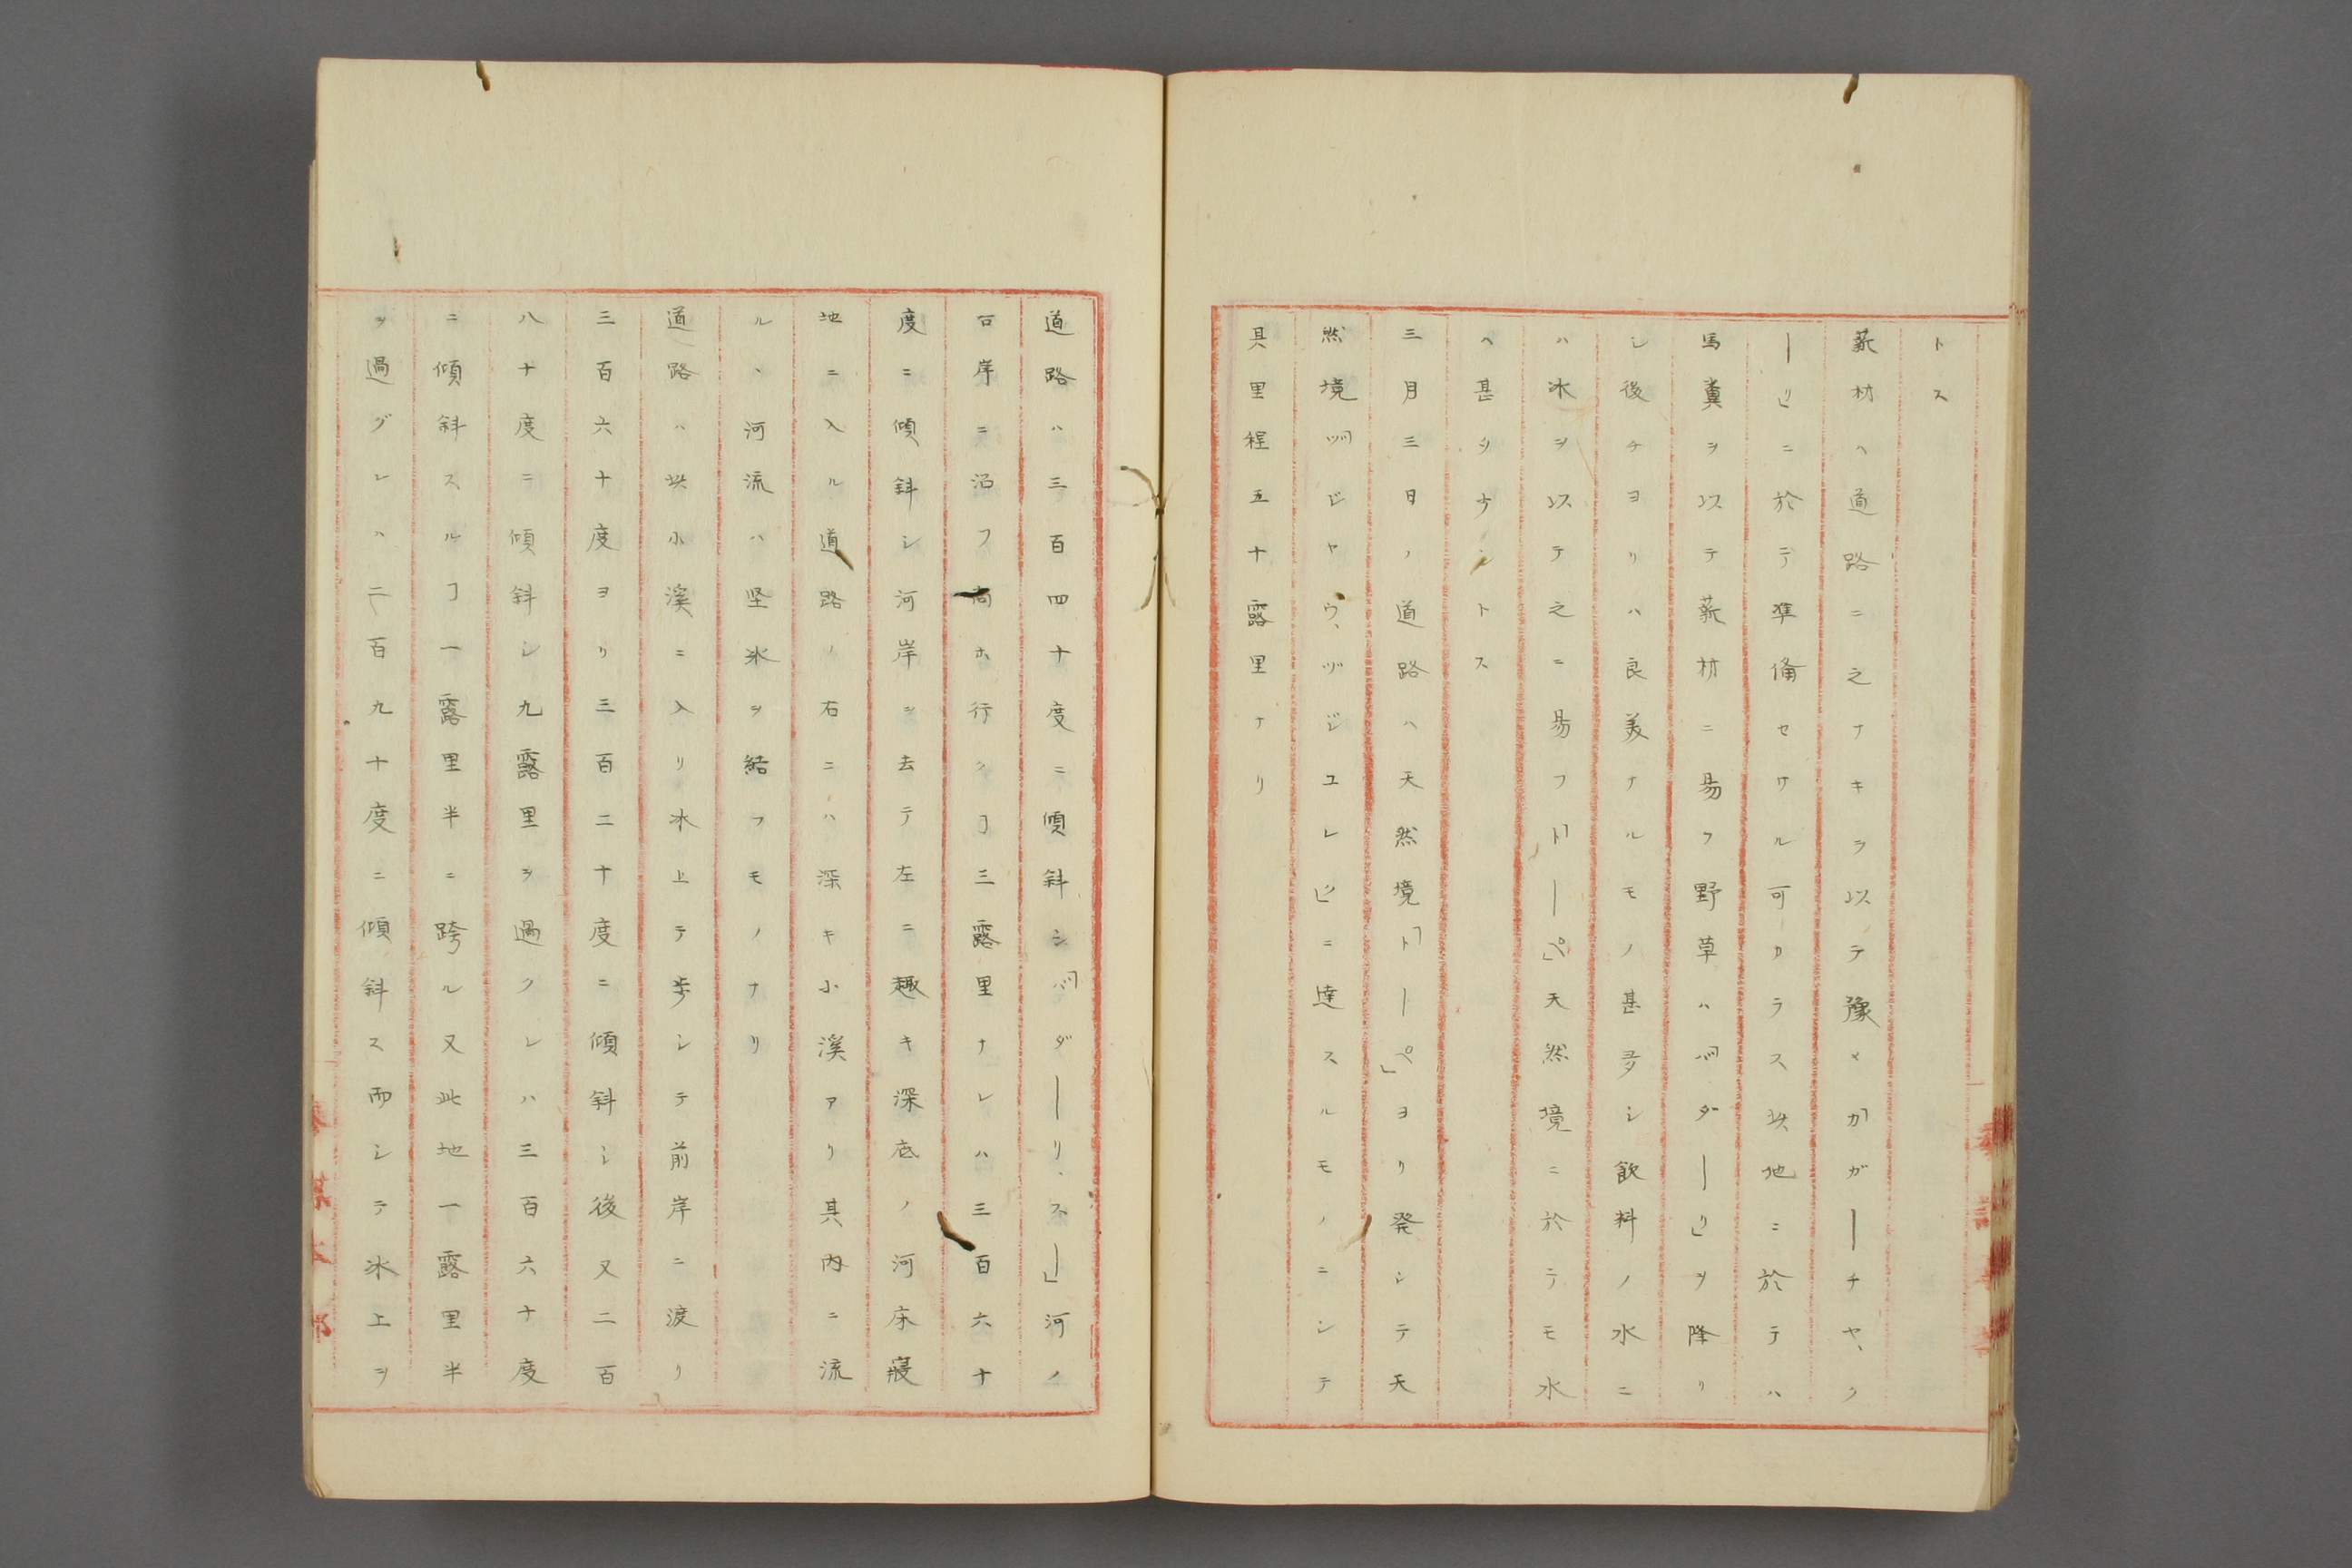 トス
薪材ハ道路ニ之ナキヲ以テ豫メ「カガーチヤ、ク
ーリ」ニ於テ準備セサル可カラス此地ニ於テハ
馬糞ヲ以テ薪材ニ易フ野草ハ「バダーリ」ヲ降リ
シ後チヨリハ良美ナルモノ甚多シ飲料ノ水ニ
ハ氷ヲ以テ之ニ易フ「トーペ」天然境ニ於テモ水
ヘ甚タ少シトス
三月三日ノ道路ハ天然境「トーペ」ヨリ発シテ天
然境「ツジヤウ、ヅジユレク」ニ達スルモノニシテ
其里程五十露里ナリ
道路ハ三百四十度ニ傾斜シ「バダーリ、スー」河ノ
右岸ニ沿フ尚ホ行クヿ三露里ナレハ三百六十
度ニ傾斜シ河岸ヲ去テ左ニ趣キ深底ノ河床寝
地ニ入ル道路ノ右ニハ深キ小溪アリ其内ニ流
ルヽ河流ハ堅氷ヲ結フモノナリ
道路ハ此小溪ニ入リ氷上テ歩シテ前岸ニ渡リ
三百六十度ヨリ三百二十度ニ傾斜シ後又二百
八十度ニ傾斜シ九露里ヲ過クレハ三百六十度
ニ傾斜スルヿ一露里半ニ跨ル又此地一露里半
ヲ過グレハ二百九十度ニ傾斜ス而シテ氷上ヲ